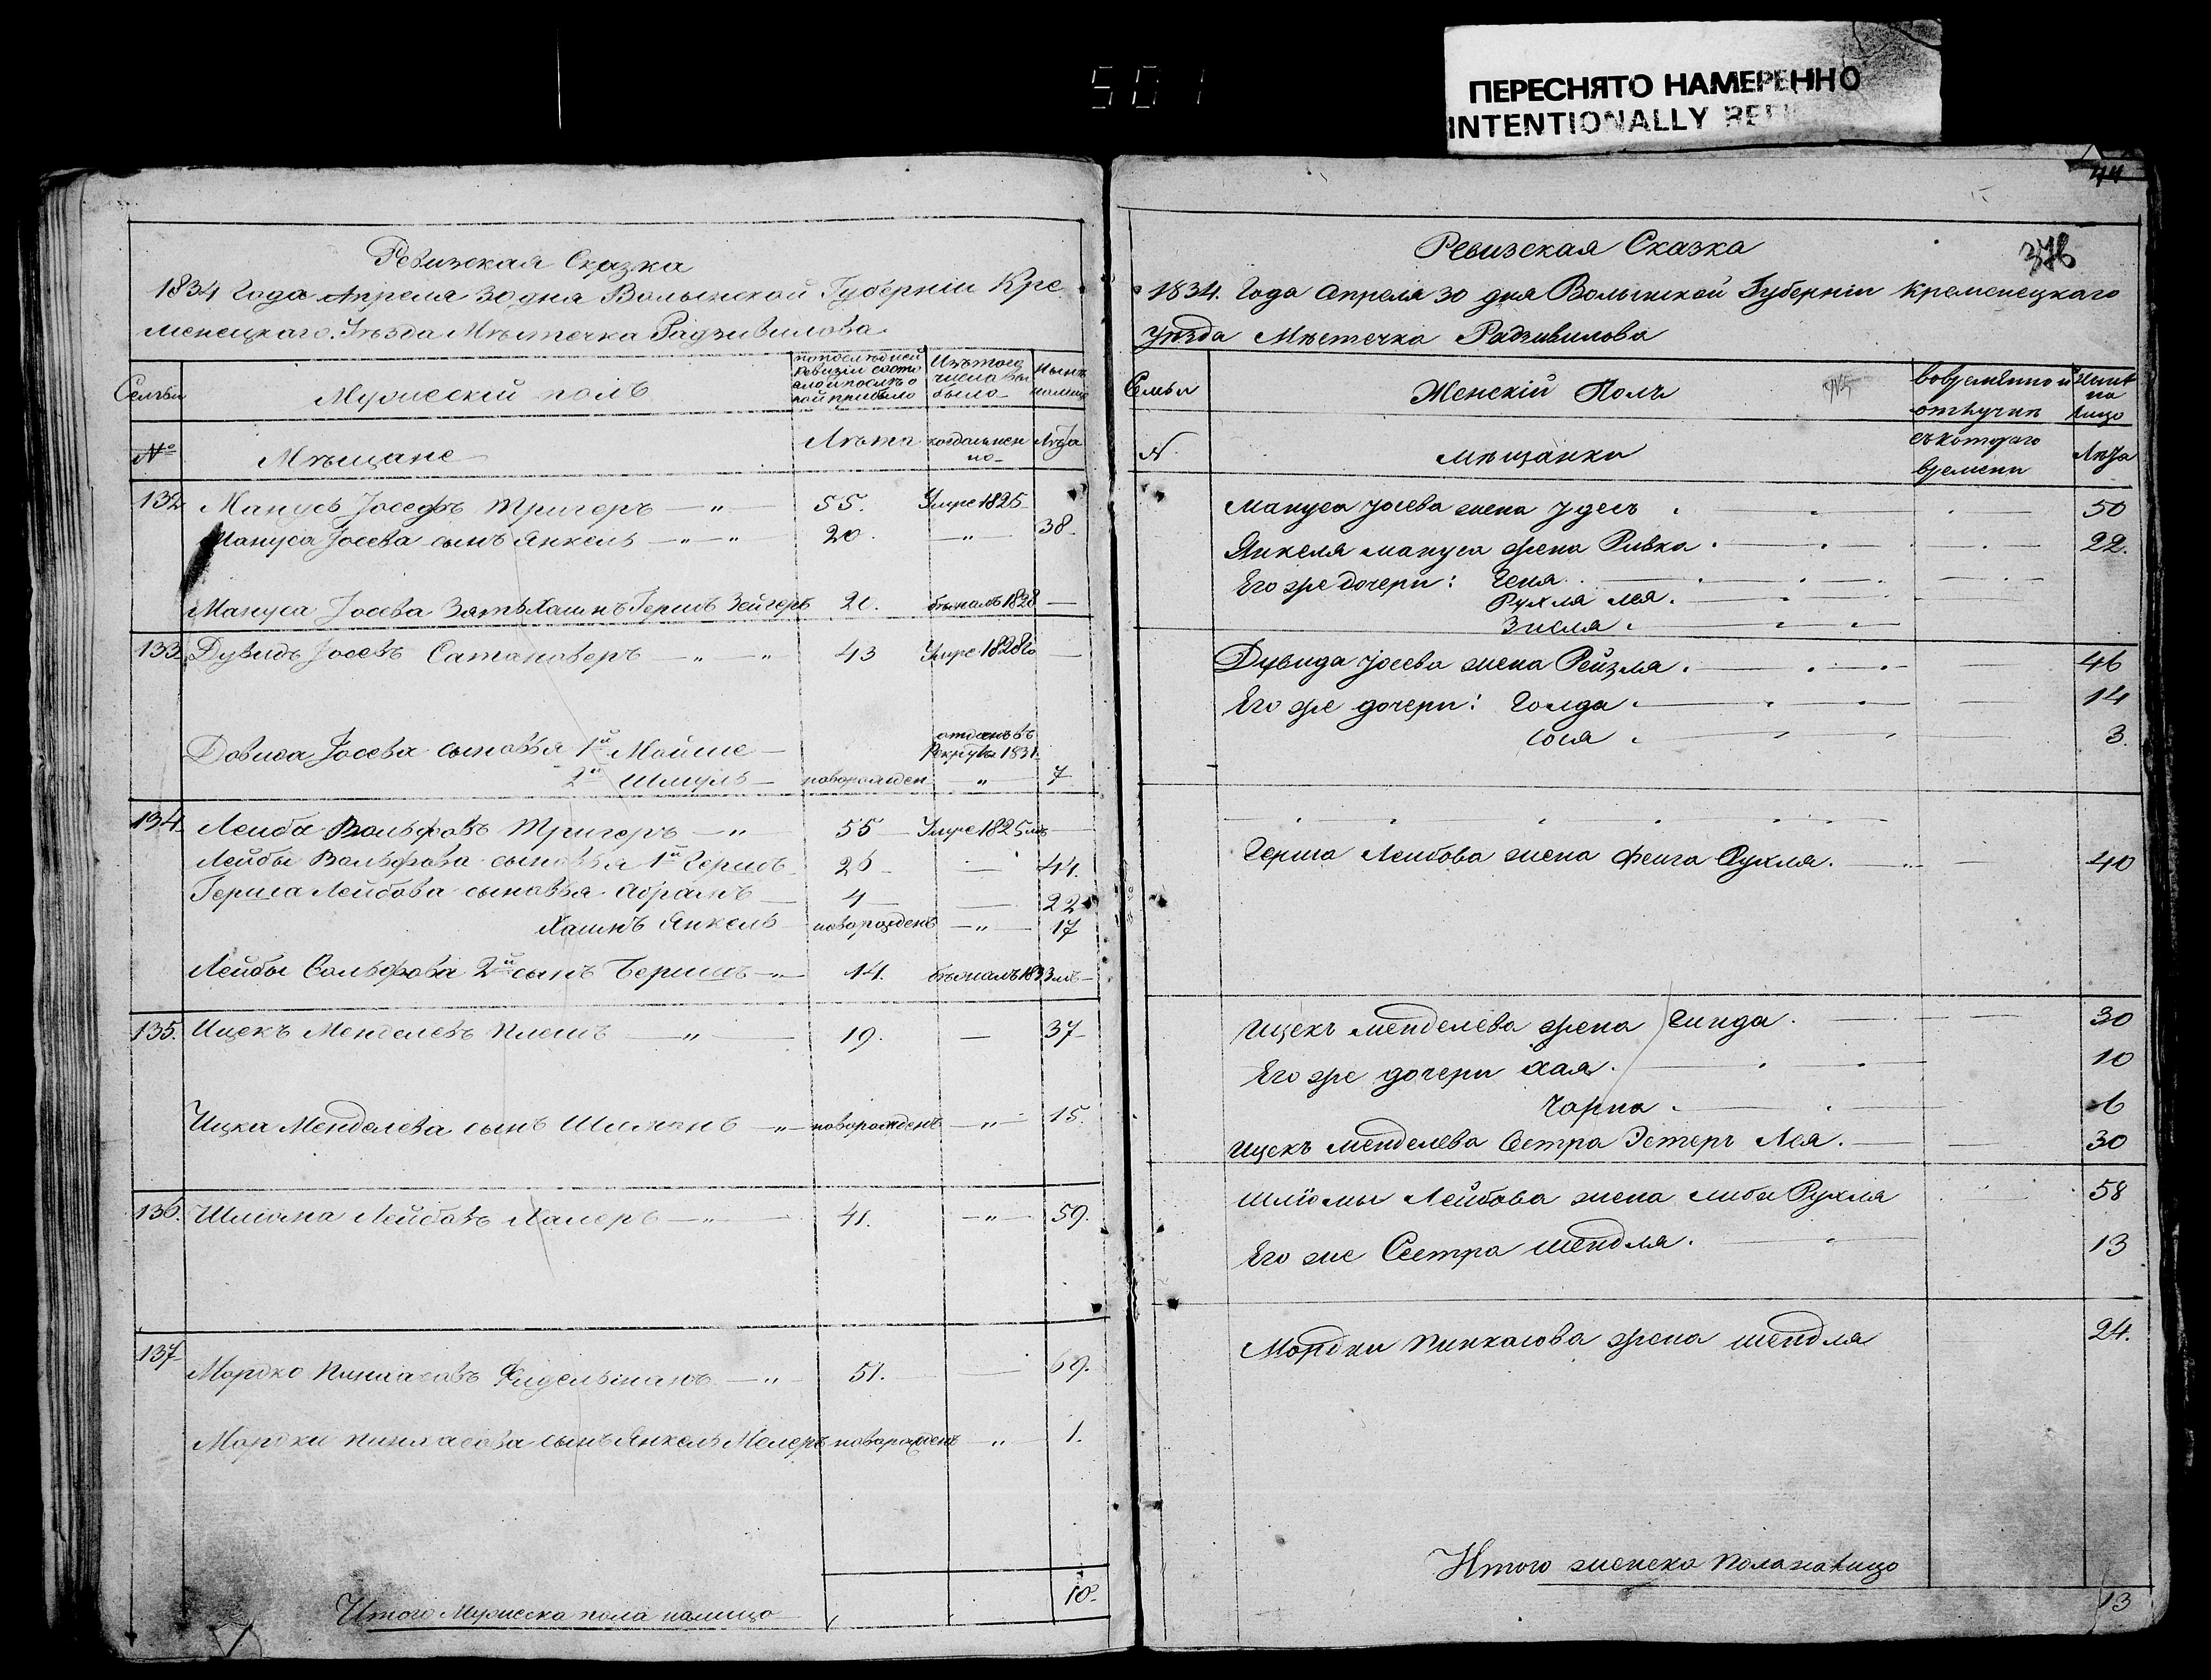 501
ПЕРЕСНЯТО НАМЕРЕННО
INTENTIONALLY
44
376
Ревизская Сказка
1834 Года Апреля 30 дня Волынской Губерніи Кре
менецкаго Уѣзда Мѣстечка Радзивилова
Семьи
Мужескій полъ
по послѣдней ревизіи состояло и послѣ оной прибыло
Изъ того числа выбыло
Нынѣ налицо
№
Мѣщане
Лѣта
когда именно
Лѣта
132 Манусъ Іосефъ Тригеръ — " — 55. Умре 1825
Мануса Іосева сынъ Янкель — " — " 20. — " — 38.
Мануса Іосева Зять Хаимъ Гершъ Зейгеръ 20. бѣжалъ 1828 —
133 Дувидъ Іосевъ Сатановеръ — " — " 43 Умре 1828 —
Довида Іосева сыновья 1й Мойше — отданъ въ Рекруты 1831.
2й Шмуль — новорожден — " — 7
134 Лейба Вольфовъ Тригеръ — " 55 — Умре 1825 —
Лейбы Вольфова сыновья 1й Гершъ 26 — 44.
Герша Лейбова сыновья Абрамъ — 4 — 22
Хаимъ Янкель новорожденъ — " — 17
Лейбы Вольфова 2й сынъ Бершъ — " 14. бѣжалъ 1833 —
135. Ицекъ Менделевъ Плешъ — " — 19. — 37
Ицка Менделева сынъ Шиманъ — " — новорожденъ — " — 15.
136. Шліома Лейбовъ Халеръ — " — 41. — " — 59.
137 Мордко Пинкасовъ Фидельманъ — " — 51. — 69.
Мордки Пинкасова сынъ Янкель Мелеръ новорожденъ — " — 1.
Итого Мужеска пола налицо 10.
Ревизская Сказка
1834. Года Апреля 30 дня Волынской Губерніи Кременецкаго
Уѣзда Мѣстечка Радзивилова
Семьи
Женскій Полъ
во временной отлучкѣ
ныне на лицо
N.
мѣщанки
съ котораго времени
Лѣта
Мануса Іосева жена Удесъ . 50
Янкеля мануса жена Ривка . 22.
Его же дочери: Геня.
Рухля Лея.
Зисля.
Дувида Іосева жена Рейзля. 46
Его же дочери: Голда. 14
Сося 3.
Герша Лейбова жена Фейга Рухля. 40
Ицекъ менделева жена Гинда. 30
Его же дочери Хая. 10
Чарна. 6
Ицекъ Менделева Сестра Эстеръ Лея. 30
Шліомы Лейбова жена Либа Рухля 58
Его же Сестра Шендля. 13
Мордки Пинкасова жена Шендля 24.
Итого женска пола налицо
13